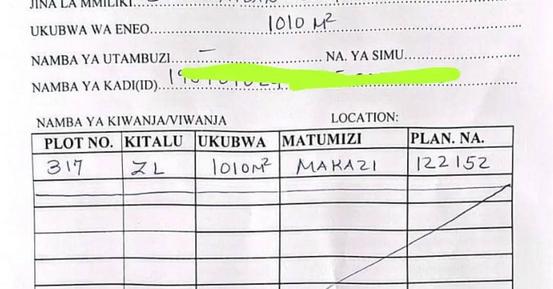 JINA LA MMILIKI
UKUBWA WA ENEO 1010 M²
NAMBA YA UTAMBUZI – NA. YA SIMU
NAMBA YA KADI(ID)
NAMBA YA KIWANJA/VIWANJA LOCATION:
PLOT NO. KITALU UKUBWA MATUMIZI PLAN. NA.
317 ZL 1010M² MAKAZI 122152